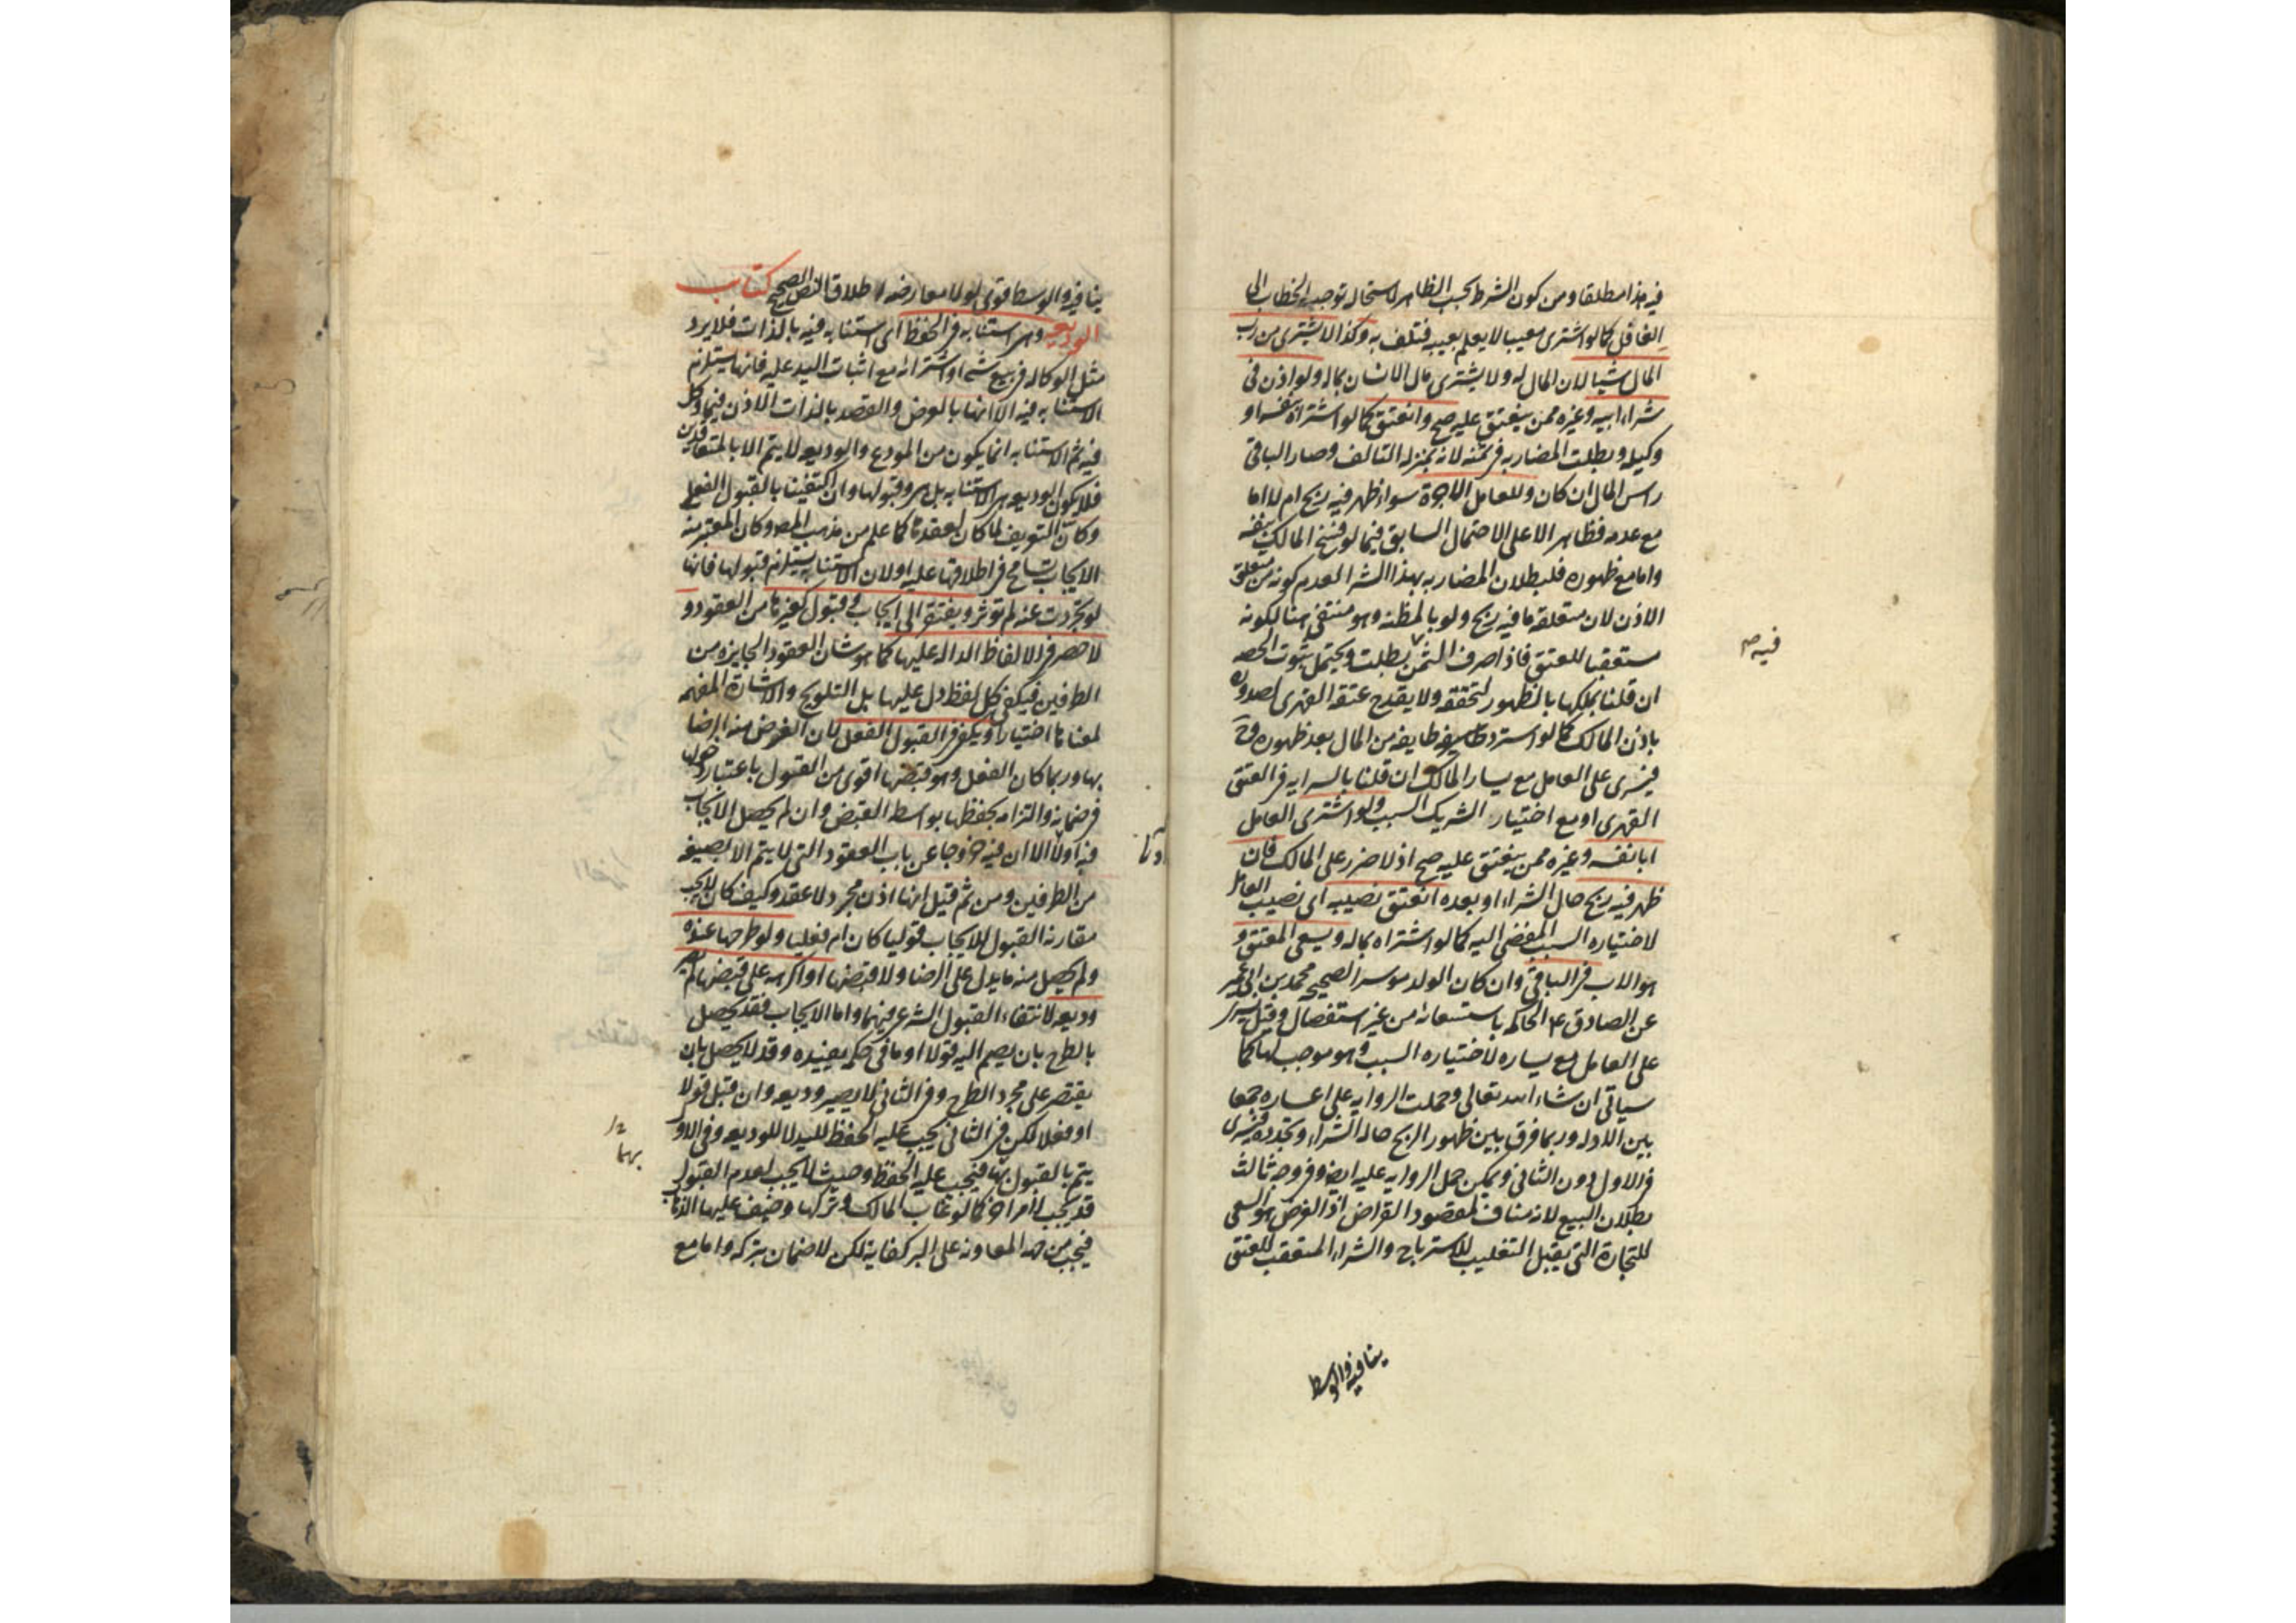 فيه هذا مطلقا ومن كون الشرط بحسب الظاهر لاستحاله توجه الخطاب الى
الغافل كما لو اشترى معيبا لا يعلم بعيبه فتلف به وكذا لا يشترى من رب
المال شيا لان المال له ولا يشترى مال الانسان بماله ولو اذن فى
شراء ابيه وغيره ممن ينعتق عليه صح وانعتق كما لو اشتراه بنفسه او
وكيله وبطلت المضاربه فى ثمنه لانه بمنزله التالف وصار الباقى
راس المال ان كان وللعامل الاجرة سواء ظهر فيه ربح ام لا اما
مع عدمه فظاهر الا على الاحتمال السابق فيما لو فسخ المالك بنفسه
واما مع ظهوره فلبطلان المضاربه بهذا الشراء لعدم كونه من متعلق
الاذن لان متعلقه ما فيه ربح ولو بالمظنه وهو منتفى هنا لكونه
مستعقبا للعتق فاذا صرف الثمن بطلت ويحتمل ثبوت الحصه
فيه صح
ان قلنا بملكها بالظهور لتحققه ولا يقدح عتقه القهرى لصدوره
باذن المالك كما لو استرد طايفه من المال بعد ظهوره وح
فيسرى على العامل مع يسار المالك ان قلنا بالسرايه فى العتق
القهرى او مع اختيار الشريك السبب ولو اشترى العامل
ابا نفسه وغيره ممن ينعتق عليه صح اذ لا ضرر على المالك فان
ظهر فيه ربح حال الشراء او بعده انعتق نصيبه اى نصيب العامل
لاختياره السبب المفضى اليه كما لو اشتراه بماله ويسعى المعتق و
هو الاب فى الباقى وان كان الولد موسرا لصحيح محمد بن ابى عمير
عن الصادق ع الحاكم باستسعائه من غير استفصال وقيل يسرى
على العامل مع يساره لاختياره السبب وهو موجب لها كما
سياتى ان شاء الله تعالى وحملت الروايه على اعساره جمعا
بين الادله وربما فرق بين ظهور الربح حاله الشراء وتجدده فيسرى
فى الاول دون الثانى ويمكن حمل الروايه عليه ايضا وفى وجه ثالث
بطلان البيع لانه مناف لمقصود القراض اذ الغرض هو السعى
للتجارة التى يقبل التقليب للاسترباح والشراء المستعقب للعتق
ينافيه والوسط
ينافيه والوسط قوى لولا معارضه اطلاق النص الصحيح كتاب
الوديعه وهى استنابه فى الحفظ اى استنابه فيه بالذات فلا يرد
مثل الوكاله فى بيع شىء او اشترائه مع اثبات اليد عليه فانها يستلزم
الاستنابه فيه الا انها بالعرض والقصد بالذات الاذن فيما وكل
فيه ثم الاستنابه انما يكون من المودع والوديعه لا يتم الا بالمتعاقدين
فلا يكون الوديعه هى الاستنابه بل هى وقبولها وان اكتفينا بالقبول الفعلى
وكان التعريف لما كان لعقدها كما علم من مذهب المص وكان المعتبر منه
الايجاب تسامح فى اطلاقها عليه او لان الاستنابه يستلزم قبولها فانها
لو تجردت عنه لم توثر ويفتقر الى ايجاب وقبول كغيرها من العقود و
لا حصر فى الالفاظ الداله عليها كما هو شان العقود الجايزه من
الطرفين فيكفى كل لفظ دل عليها بل التلويح والاشارة المفهمه
لمعناها اختيارا ويكفى فى القبول الفعل لان الغرض منه الرضا
بها وربما كان الفعل وهو قبضها اقوى من القبول باعتبار دخولها
فى ضمانه والتزامه بحفظها بواسطه القبض وان لم يحصل الايجاب
فيه اولا الا ان فيه خروجا عن باب العقود التى لا يتم الا بصيغه
من الطرفين ومن ثم قيل انها اذن مجرد لا عقد وكيف كان لا يجب
مقارنه القبول للايجاب قوليا كان ام فعليا ولو طرحها عنده
ولم يحصل منه ما يدل على الرضا ولا قبضها او اكرهه على قبضها لم يصر
وديعه لانتفاء القبول الشرعى فيهما واما الايجاب فقد يحصل
بالطرح بان يضم اليه قولا او ما فى حكمه يفيده وقد لا يحصل بان
يقتصر على مجرد الطرح وفى الثانى لا يصير وديعه وان قبل قولا
او فعلا لكن فى الثانى يجب عليه الحفظ لليد لا للوديعه وفى الاول
يتم بالقبول بهما فيجب عليه الحفظ وحيث لا يجب لعدم القبول
بهما
قد يجب لامر اخر كما لو غاب المالك وتركها وخيف عليها الذهاب
فيجب من جهه المعاونه على البر كفاية لكن لا ضمان بتركه واما مع